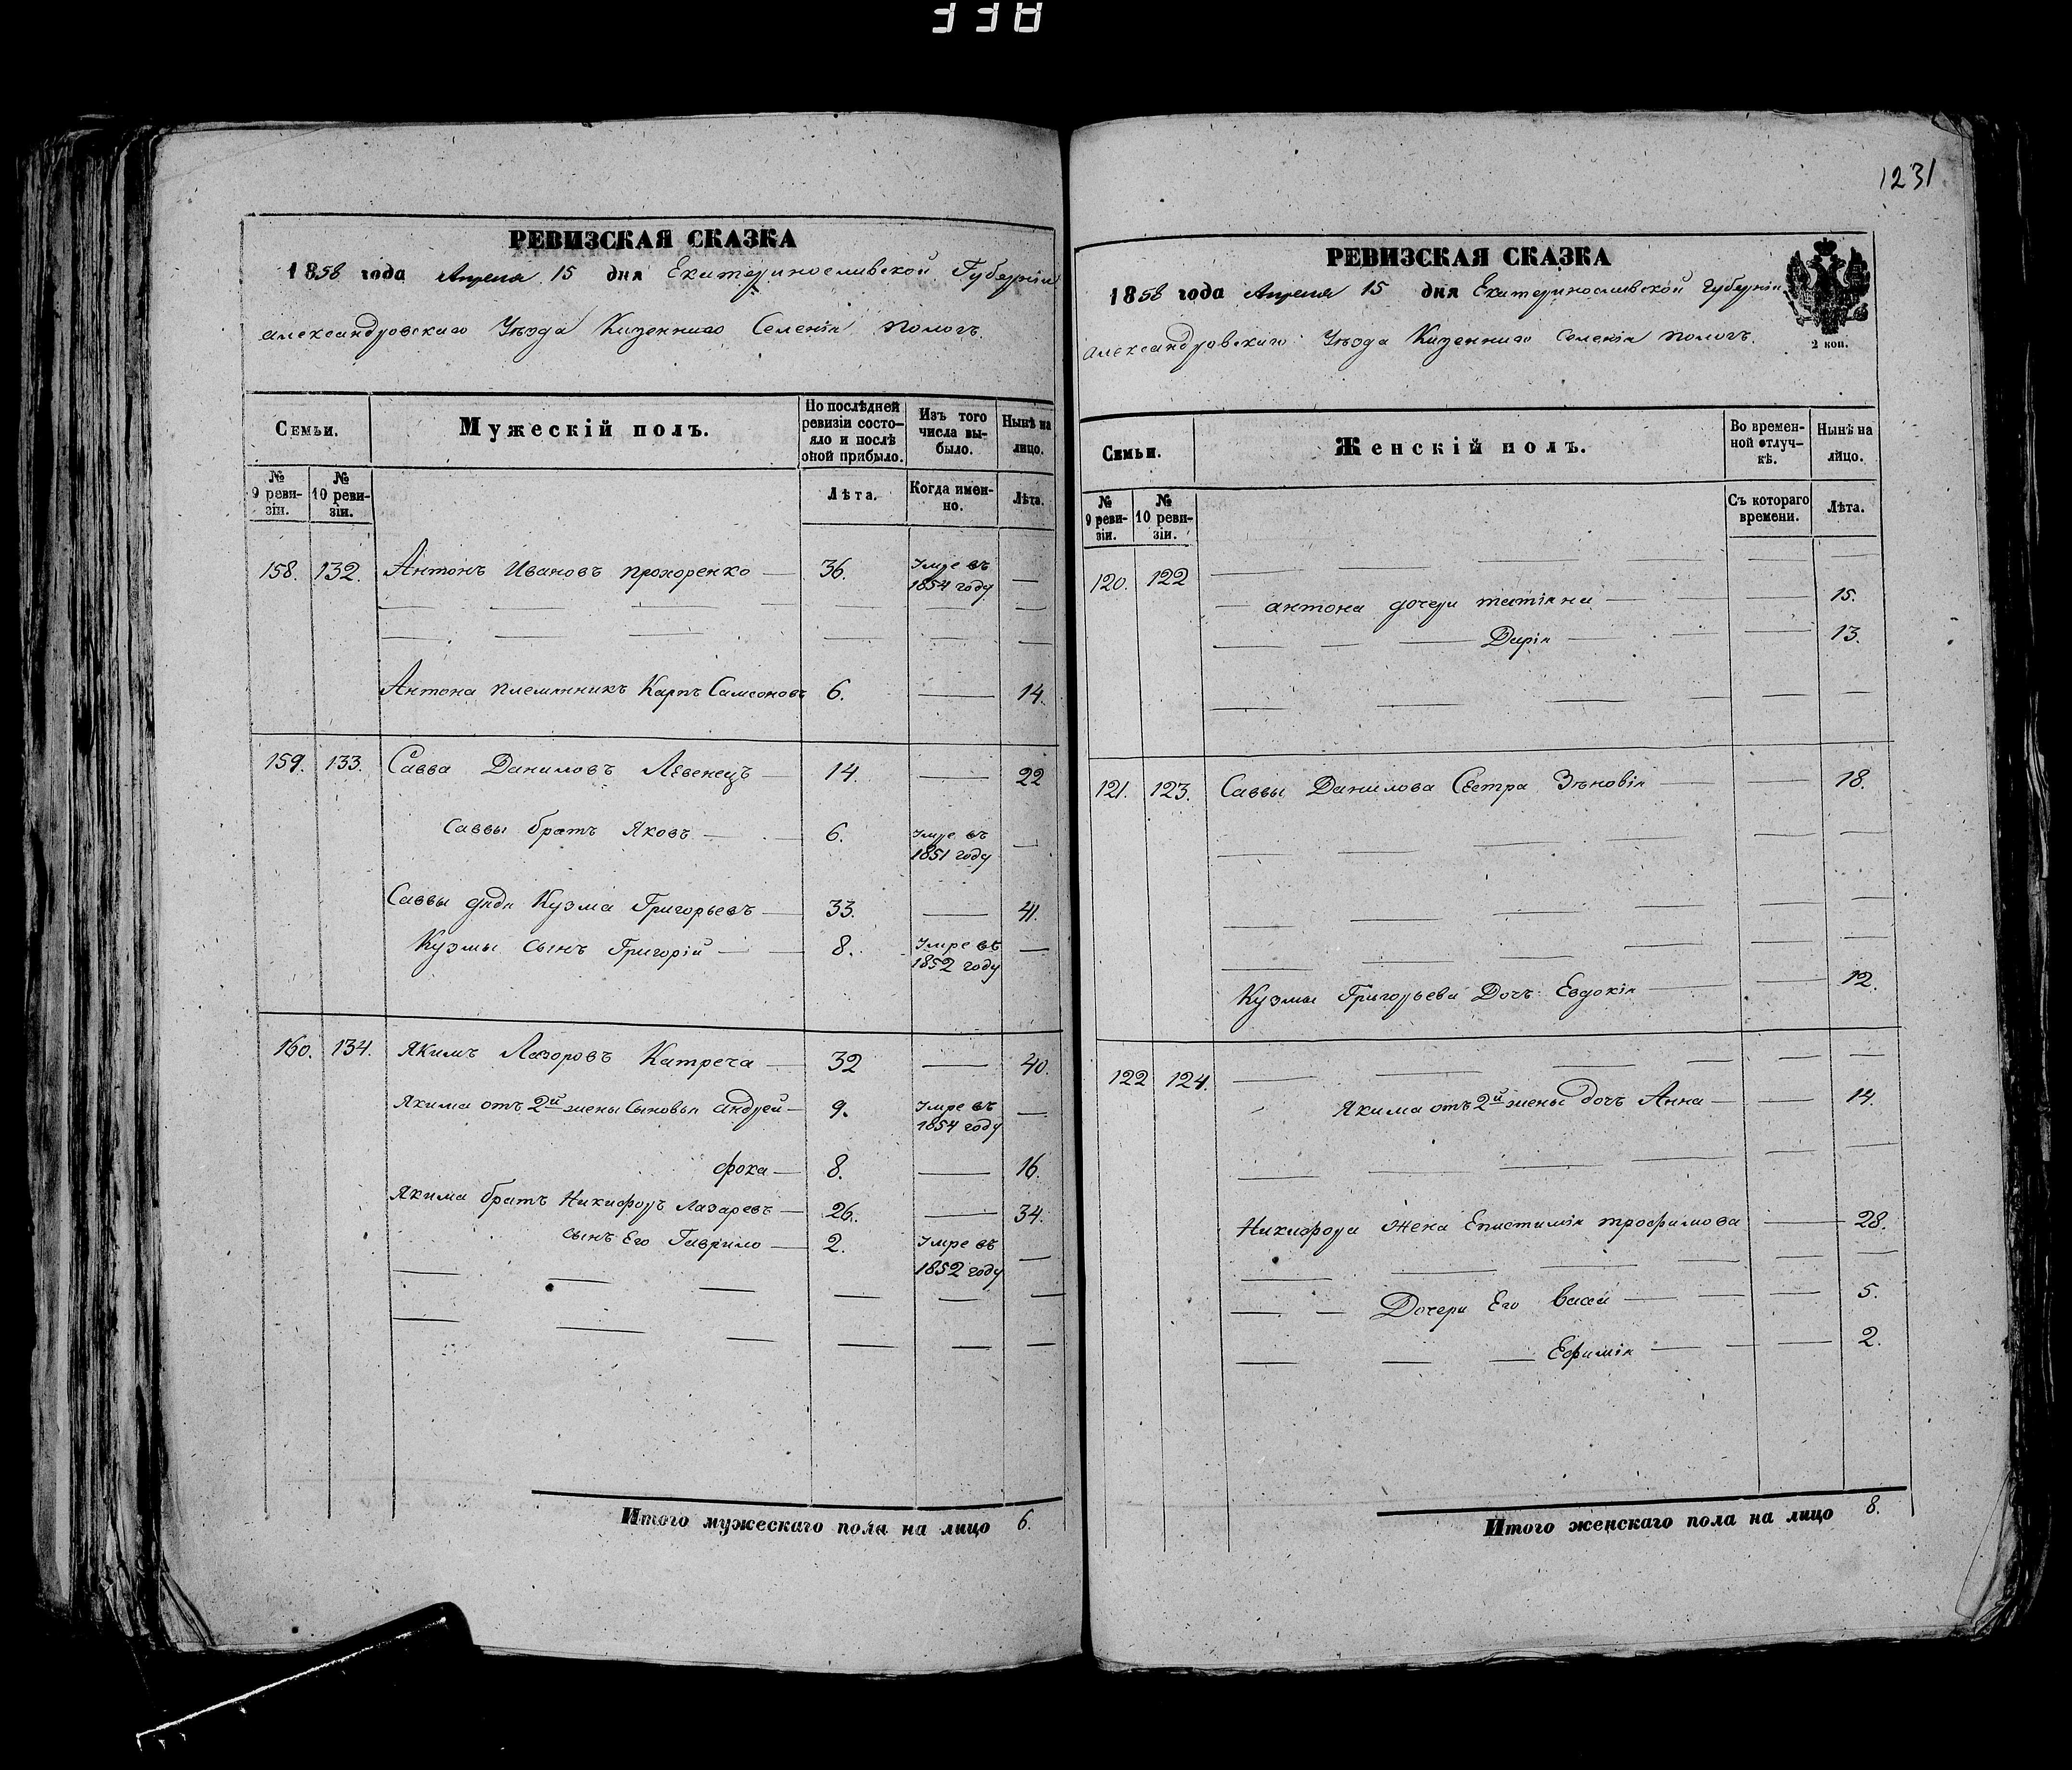 1231
РЕВИЗСКАЯ СКАЗКА
1858 года Апреля 15 дня Екатеринославской Губерніи
александровскаго Уѣзда Казеннаго Селенія Пологъ.
Семьи.
Мужескій полъ.
По послѣдней ревизіи состояло и послѣ оной прибыло.
Изъ того числа выбыло.
Нынѣ на лицо.
№ 9 ревизіи.
№ 10 ревизіи.
Лѣта.
Когда именно.
Лѣта.
158. 132. Антонъ Ивановъ Прохоренко — 36. Умре въ 1854 году —
Антона племянникъ Карпъ Самсоновъ 6. — 14.
159. 133. Савва Даниловъ Левенецъ — 14. — 22
Саввы братъ Яковъ — 6. Умре въ 1851 году —
Саввы дядя Кузма Григорьевъ — 33. — 41.
Кузмы сынъ Григорій — 8. Умре въ 1852 году —
160. 134. Якимъ Лазоровъ Катреча — 32 — 40.
Якима отъ 2й жены Сыновья андрей — 9. Умре въ 1854 году —
фока — 8. — 16.
Якима братъ Никифоръ Лазаревъ — 26. — 34.
сынъ Его Гаврило — 2. Умре въ 1852 году —
Итого мужескаго пола на лицо 6.
РЕВИЗСКАЯ СКАЗКА
1858 года Апреля 15 дня Екатеринославской Губерніи
александровскаго Уѣзда Казеннаго Селенія Пологъ.
2 коп.
Семьи.
Женскій полъ.
Во временной отлучкѣ.
Нынѣ на лицо.
№ 9 ревизіи.
№ 10 ревизіи.
Съ котораго времени.
Лѣта.
120. 122
антона дочери татіяна — 15.
Дарія — 13.
121. 123. Саввы Данилова Сестра Зѣновія — 18.
Кузмы Григорьева Дочь Евдокія — 12.
122 124.
Якима отъ 2й жены дочь Анна — 14.
Никифора жена Епистимія трофимова — 28.
Дочери Его Васса — 5.
Ефимія — 2.
Итого женскаго пола на лицо 8.